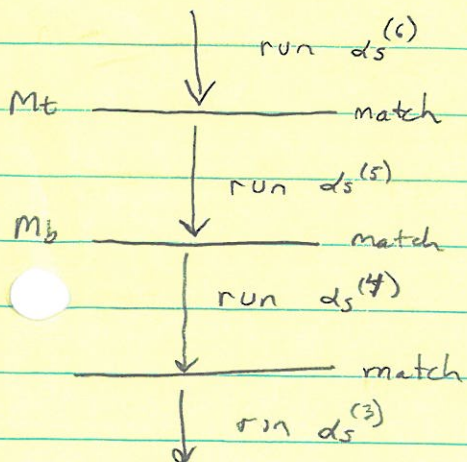 run αs^(6)
Mt match
run αs^(5)
Mb match
run αs^(4)
match
run αs^(3)